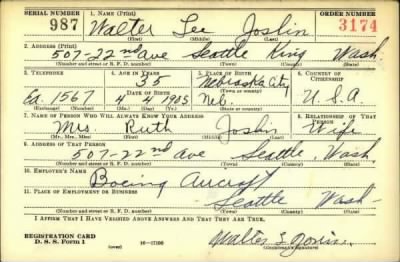 SERIAL NUMBER 1. NAME (Print) ORDER NUMBER
987 Walter Lee Joslin 3174
(First) (Middle) (Last)
2. ADDRESS (Print)
507-22nd Ave Seattle King Wash
(Number and street or R. F. D. number) (Town) (County) (State)
3. TELEPHONE 4. AGE IN YEARS 5. PLACE OF BIRTH 6. COUNTRY OF CITIZENSHIP
35 Nebraska City
DATE OF BIRTH (Town or county)
Ea. 1567 4 4 1905 Neb. U.S.A.
(Exchange) (Number) (Mo.) (Day) (Yr.) (State or country)
7. NAME OF PERSON WHO WILL ALWAYS KNOW YOUR ADDRESS 8. RELATIONSHIP OF THAT PERSON
Mrs. Ruth Joslin Wife
(Mr., Mrs., Miss) (First) (Middle) (Last)
9. ADDRESS OF THAT PERSON
507-22nd Ave Seattle, Wash
(Number and street or R. F. D. number) (Town) (County) (State)
10. EMPLOYER'S NAME
Boeing Aircraft
11. PLACE OF EMPLOYMENT OR BUSINESS
Seattle Wash
(Number and street or R. F. D. number) (Town) (County) (State)
I AFFIRM THAT I HAVE VERIFIED ABOVE ANSWERS AND THAT THEY ARE TRUE.
REGISTRATION CARD
D. S. S. Form 1 (over) Walter L Joslin
(Registrant's signature)